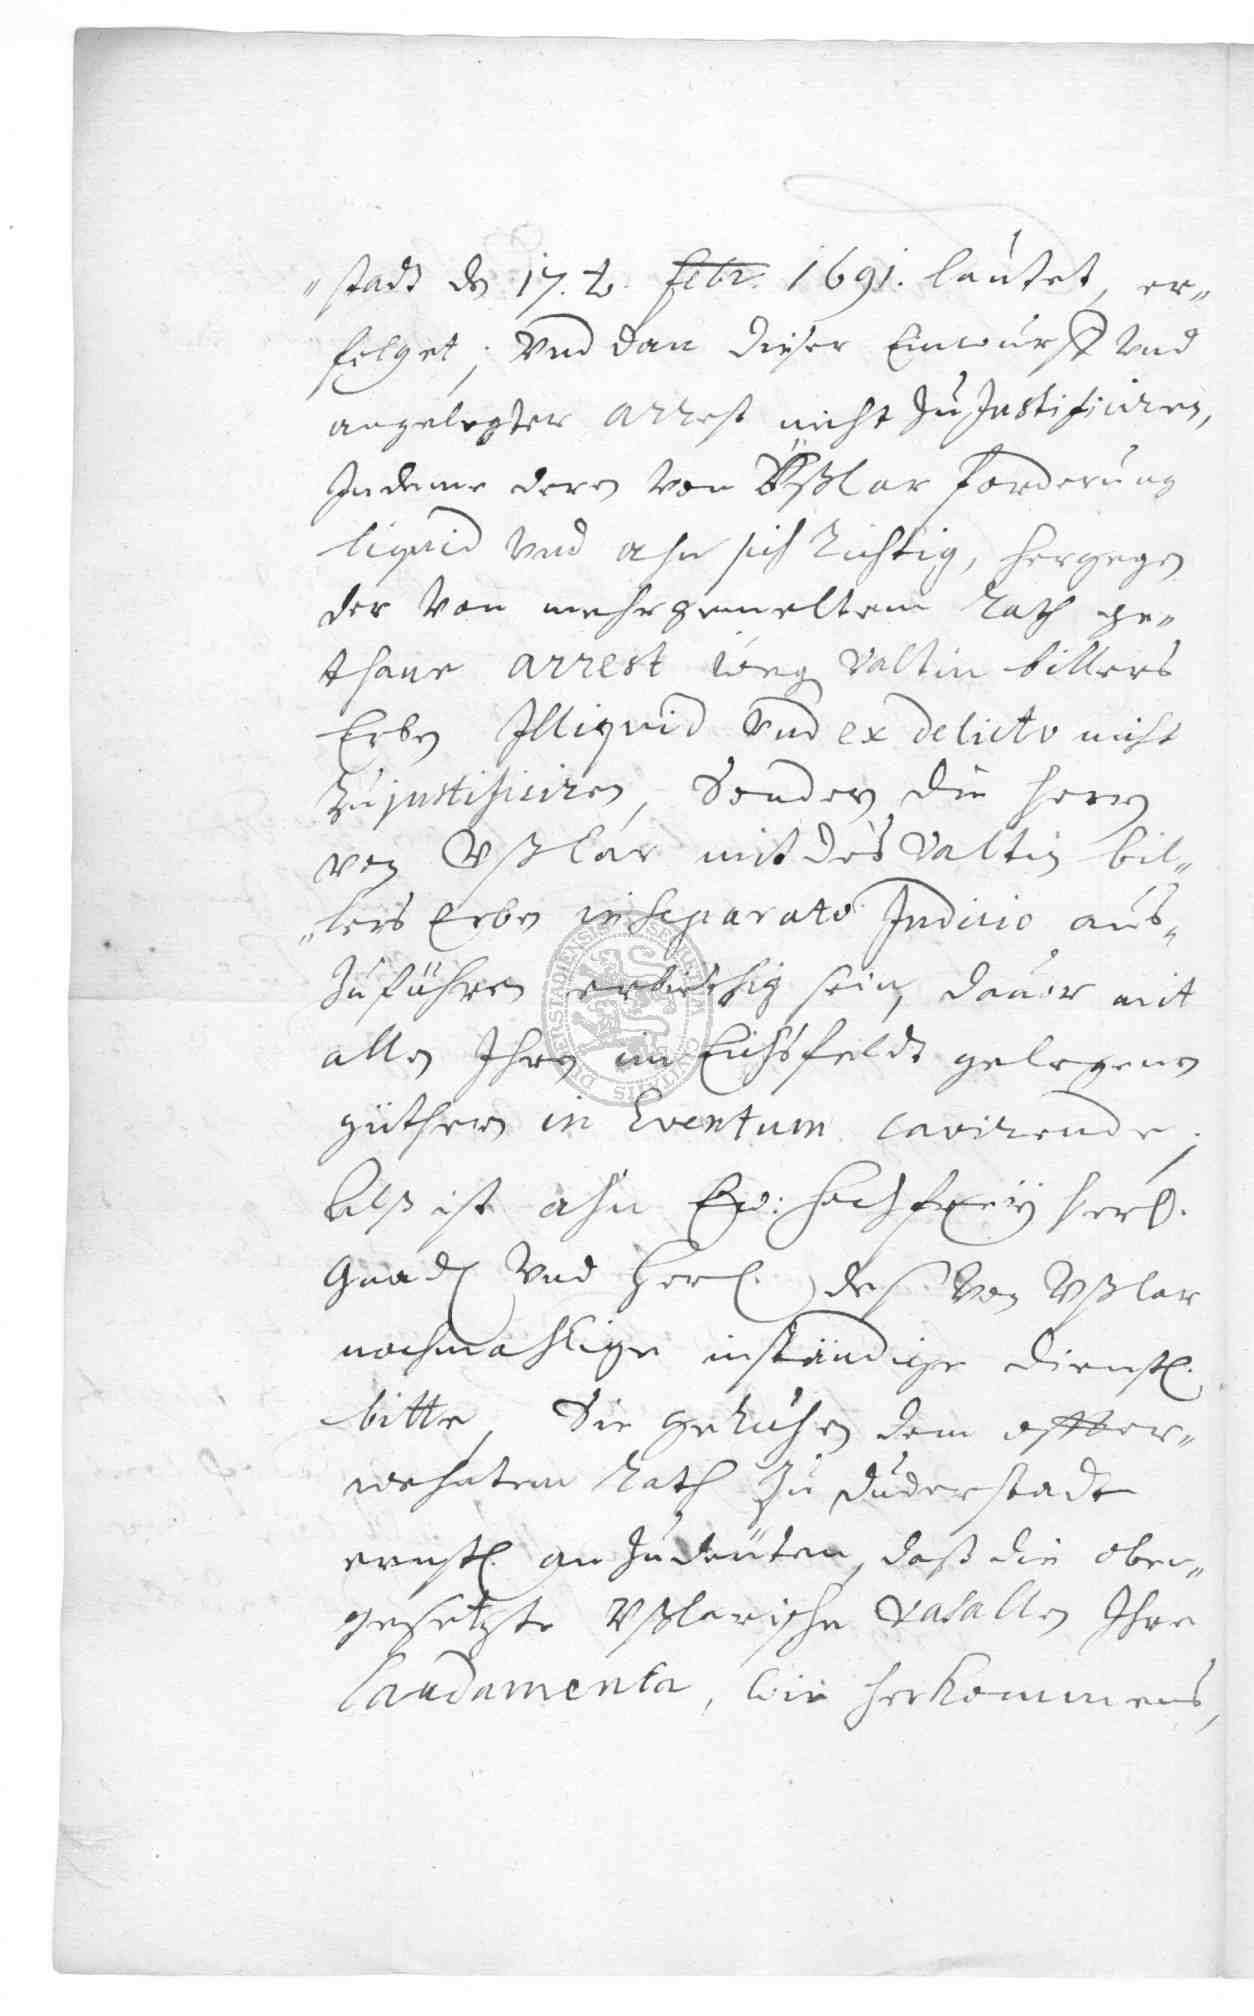 stadt d. 17.t. Febr. 1691. lautet, er=
folget; Vnd dan dieser Einwurff Vnd
angelegter arrest nicht zu Justificiren,
Indeme deren Von Vßlar forderung
liquid Vnd ahn sich richtig, hergegen
der Von mehrgemeltem Rath ge=
thane arrest weg. Valtin billers
Erben Illiquid Vnd ex delicto nicht
zu justificiren, Sondern die Herrn
von Vßlar mit des Valtin bil=
lers Erben in separato Judicio aus=
zuführen erbiethig sein, davor mit
allen Ihren im Eichsfeldt gelegenen
güthern in Eventum cavirende;
Alß ist ahn Ew: Hochfreyherl.
Gnad. Vnd Herl. der Von Vßlar
nochmahlige inständige dienstl.
bitte, Sie geruhen dem offter=
wehntem Rath zu Duderstadt
ernstl. an zudeuten, daß die oben=
gesetzte Vßlarische Vasallen Ihre
Laudamenta, wie herkommens,
SIGILLUM CIVITATIS DUDERSTADIENSIS